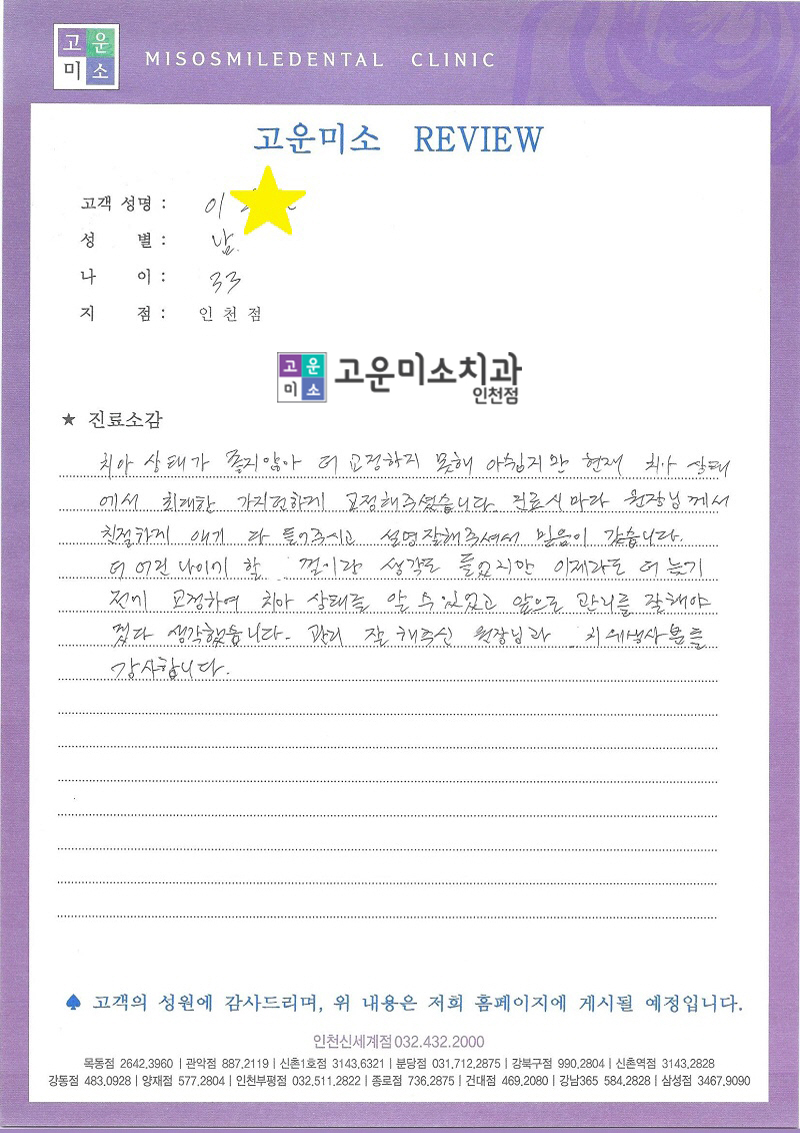 고운
미소
MISOSMILEDENTAL CLINIC
고운미소 REVIEW
고객 성명 : 이
성 별 : 남.
나 이 : 33
지 점 : 인 천 점
고운
미소
고운미소치과
인천점
★ 진료소감
치아 상태가 좋지않아 더 교정하지 못해 아쉽지만 현재 치아 상태
에서 최대한 가지런하게 교정해주셨습니다. 진료시마다 원장님께서
친절하게 얘기 다 들어주시고 설명잘해주셔서 믿음이 갔습니다.
더 어린나이에 할 껄이란 생각도 들었지만 이제라도 더 늦기
전에 교정하여 치아 상태를 알 수 있었고 앞으로 관리를 잘해야
겠다 생각했습니다. 관리 잘 해주신 원장님과 치위생사분들
감사합니다.
♠ 고객의 성원에 감사드리며, 위 내용은 저희 홈페이지에 게시될 예정입니다.
인천신세계점 032.432.2000
목동점 2642.3960 | 관악점 887.2119 | 신촌1호점 3143.6321 | 분당점 031.712.2875 | 강북구점 990.2804 | 신촌역점 3143.2828
강동점 483.0928 | 양재점 577.2804 | 인천부평점 032.511.2822 | 종로점 736.2875 | 건대점 469.2080 | 강남365 584.2828 | 삼성점 3467.9090